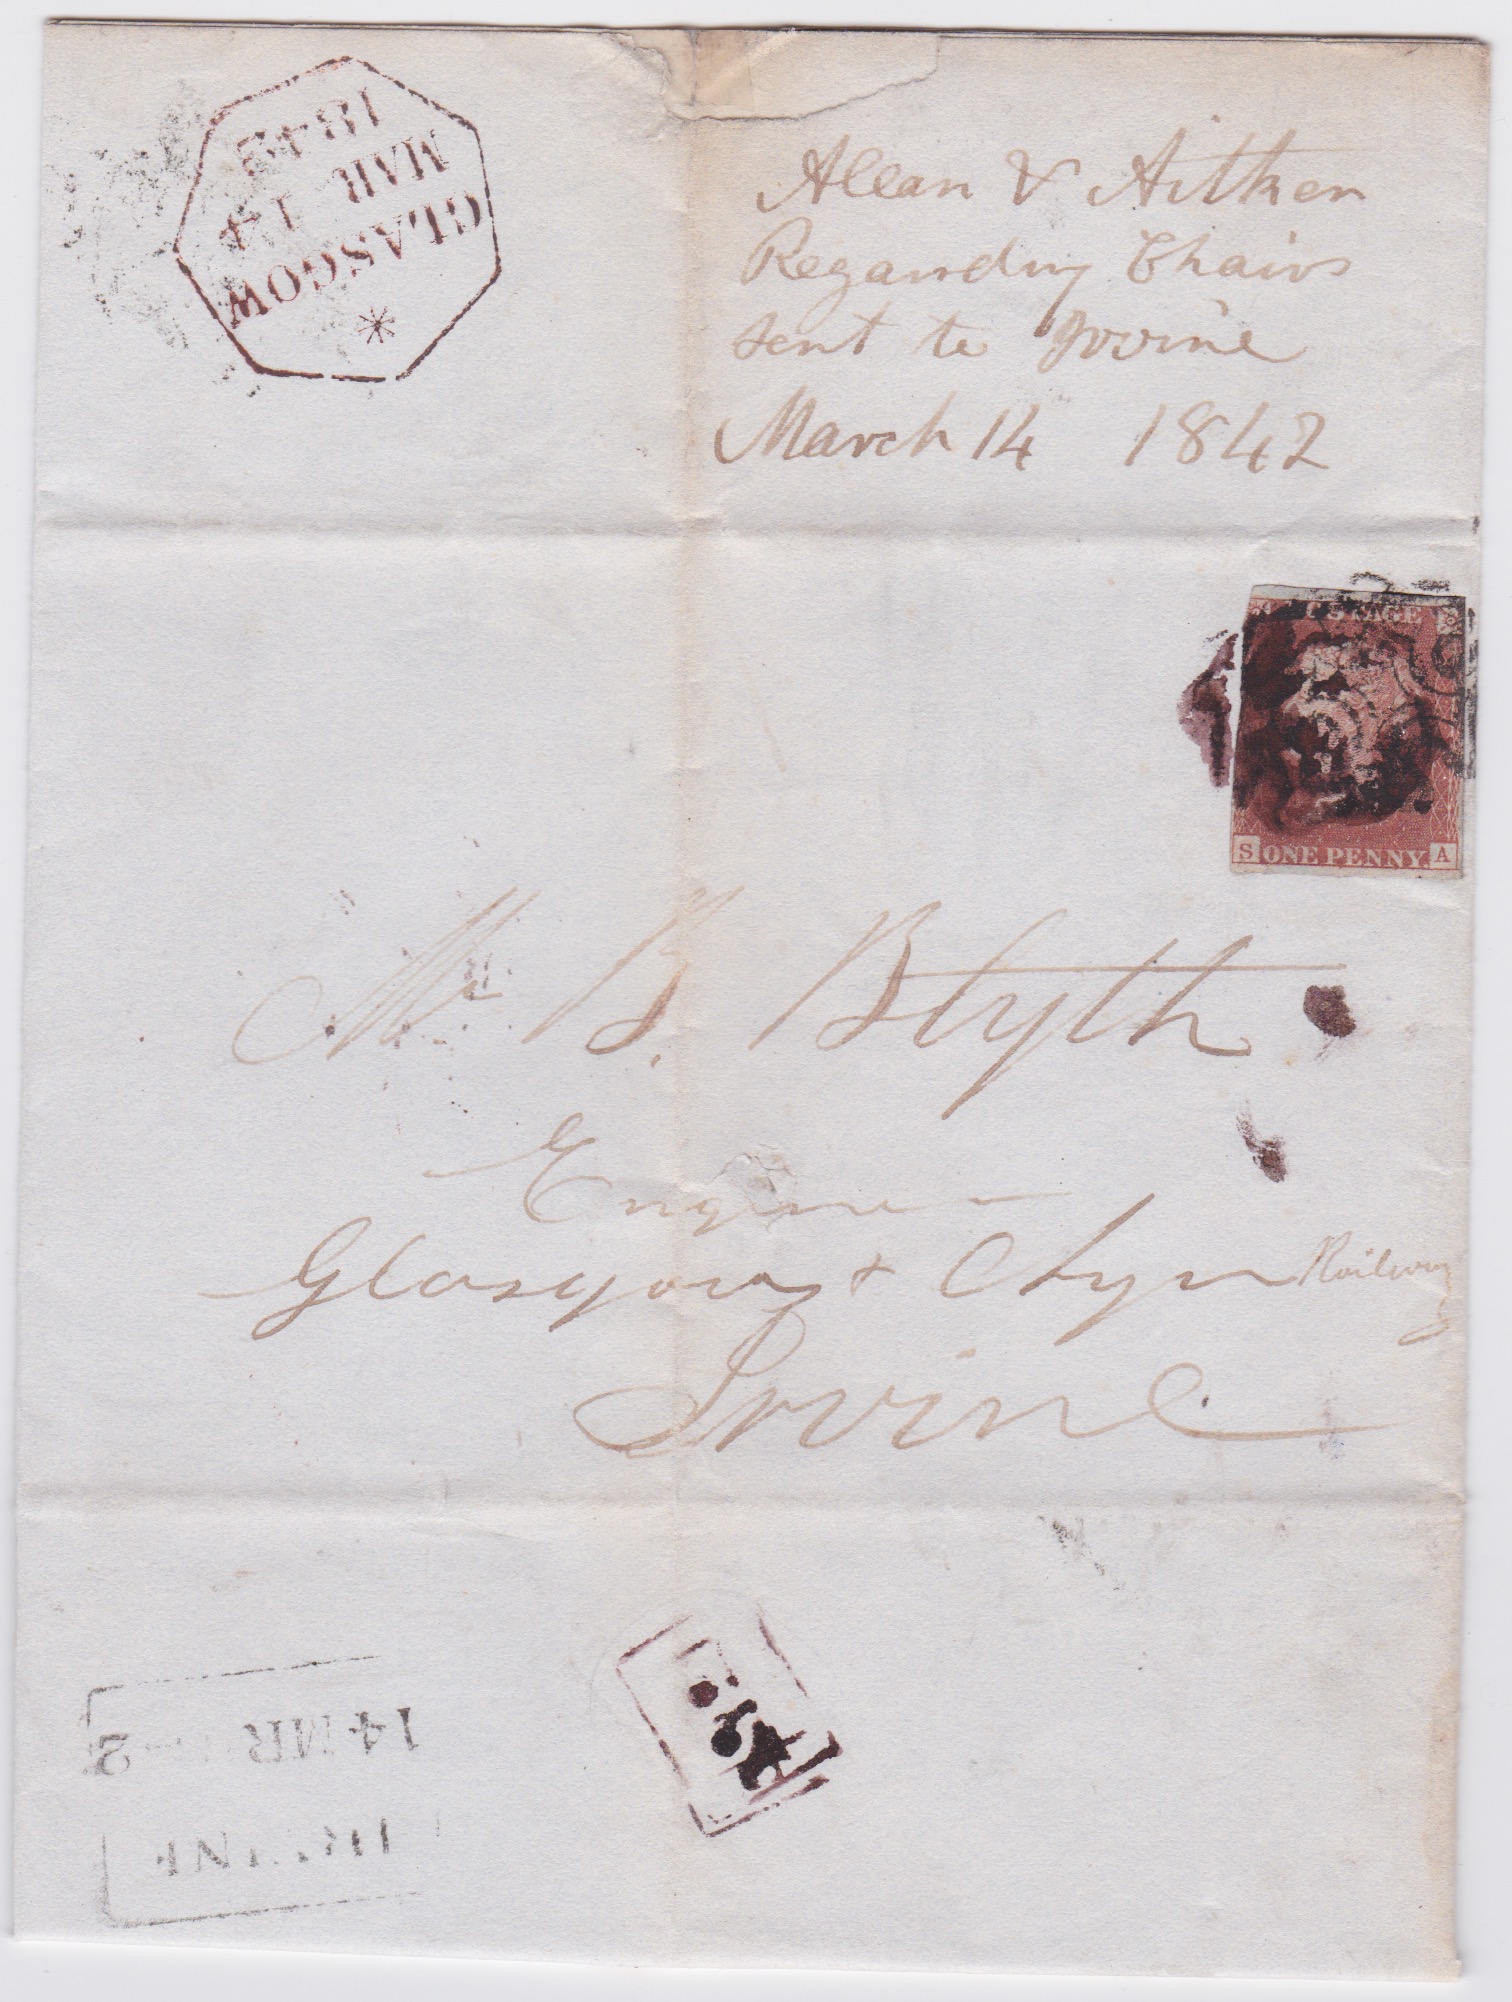 GLASGOW
MAR 14
1842
Allan & Aitken
Regarding Chairs
sent to Irvine
March 14 1842
POSTAGE
S ONE PENNY. A
Mr B. Blyth
Engine
Glasgow & Ayr Railway
Irvine
14 MR